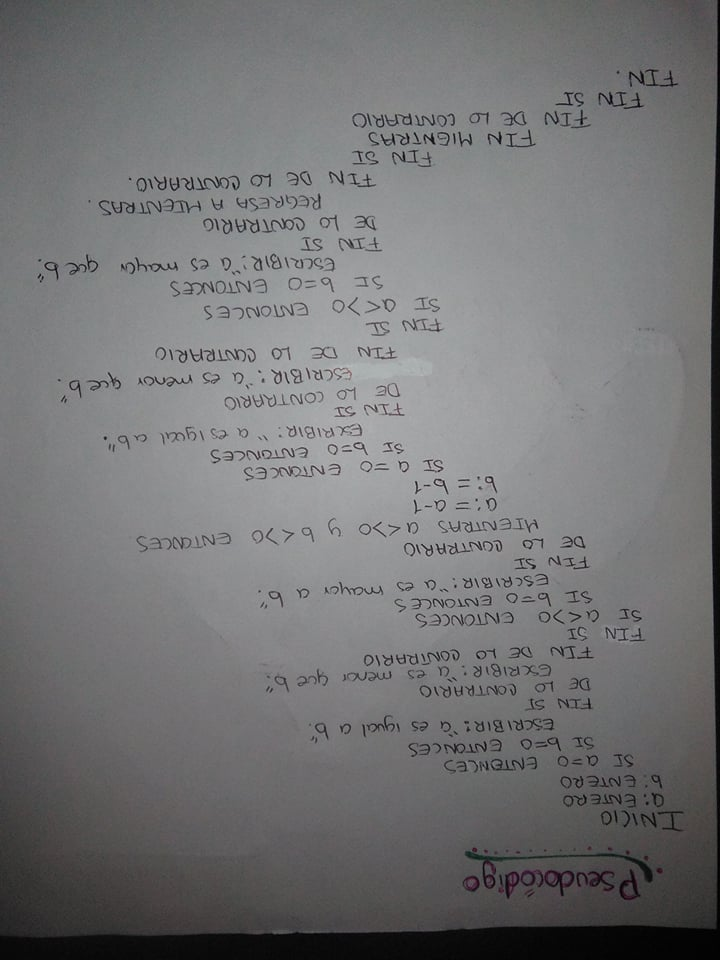 Pseudocódigo
INICIO
a: ENTERO
b: ENTERO
SI a=0 ENTONCES
SI b=0 ENTONCES
ESCRIBIR: "a es igual a b".
FIN SI
DE LO CONTRARIO
ESCRIBIR: "a es menor que b".
FIN DE LO CONTRARIO
FIN SI
SI a<>0 ENTONCES
SI b=0 ENTONCES
ESCRIBIR: "a es mayor a b".
FIN SI
DE LO CONTRARIO
MIENTRAS a<>0 y b<>0 ENTONCES
a:=a-1
b:=b-1
SI a=0 ENTONCES
SI b=0 ENTONCES
ESCRIBIR: "a es igual a b".
FIN SI
DE LO CONTRARIO
ESCRIBIR: "a es menor que b".
FIN DE LO CONTRARIO
FIN SI
SI a<>0 ENTONCES
SI b=0 ENTONCES
ESCRIBIR: "a es mayor que b".
FIN SI
DE LO CONTRARIO
REGRESA A MIENTRAS.
FIN DE LO CONTRARIO.
FIN SI
FIN MIENTRAS
FIN DE LO CONTRARIO
FIN SI
FIN.